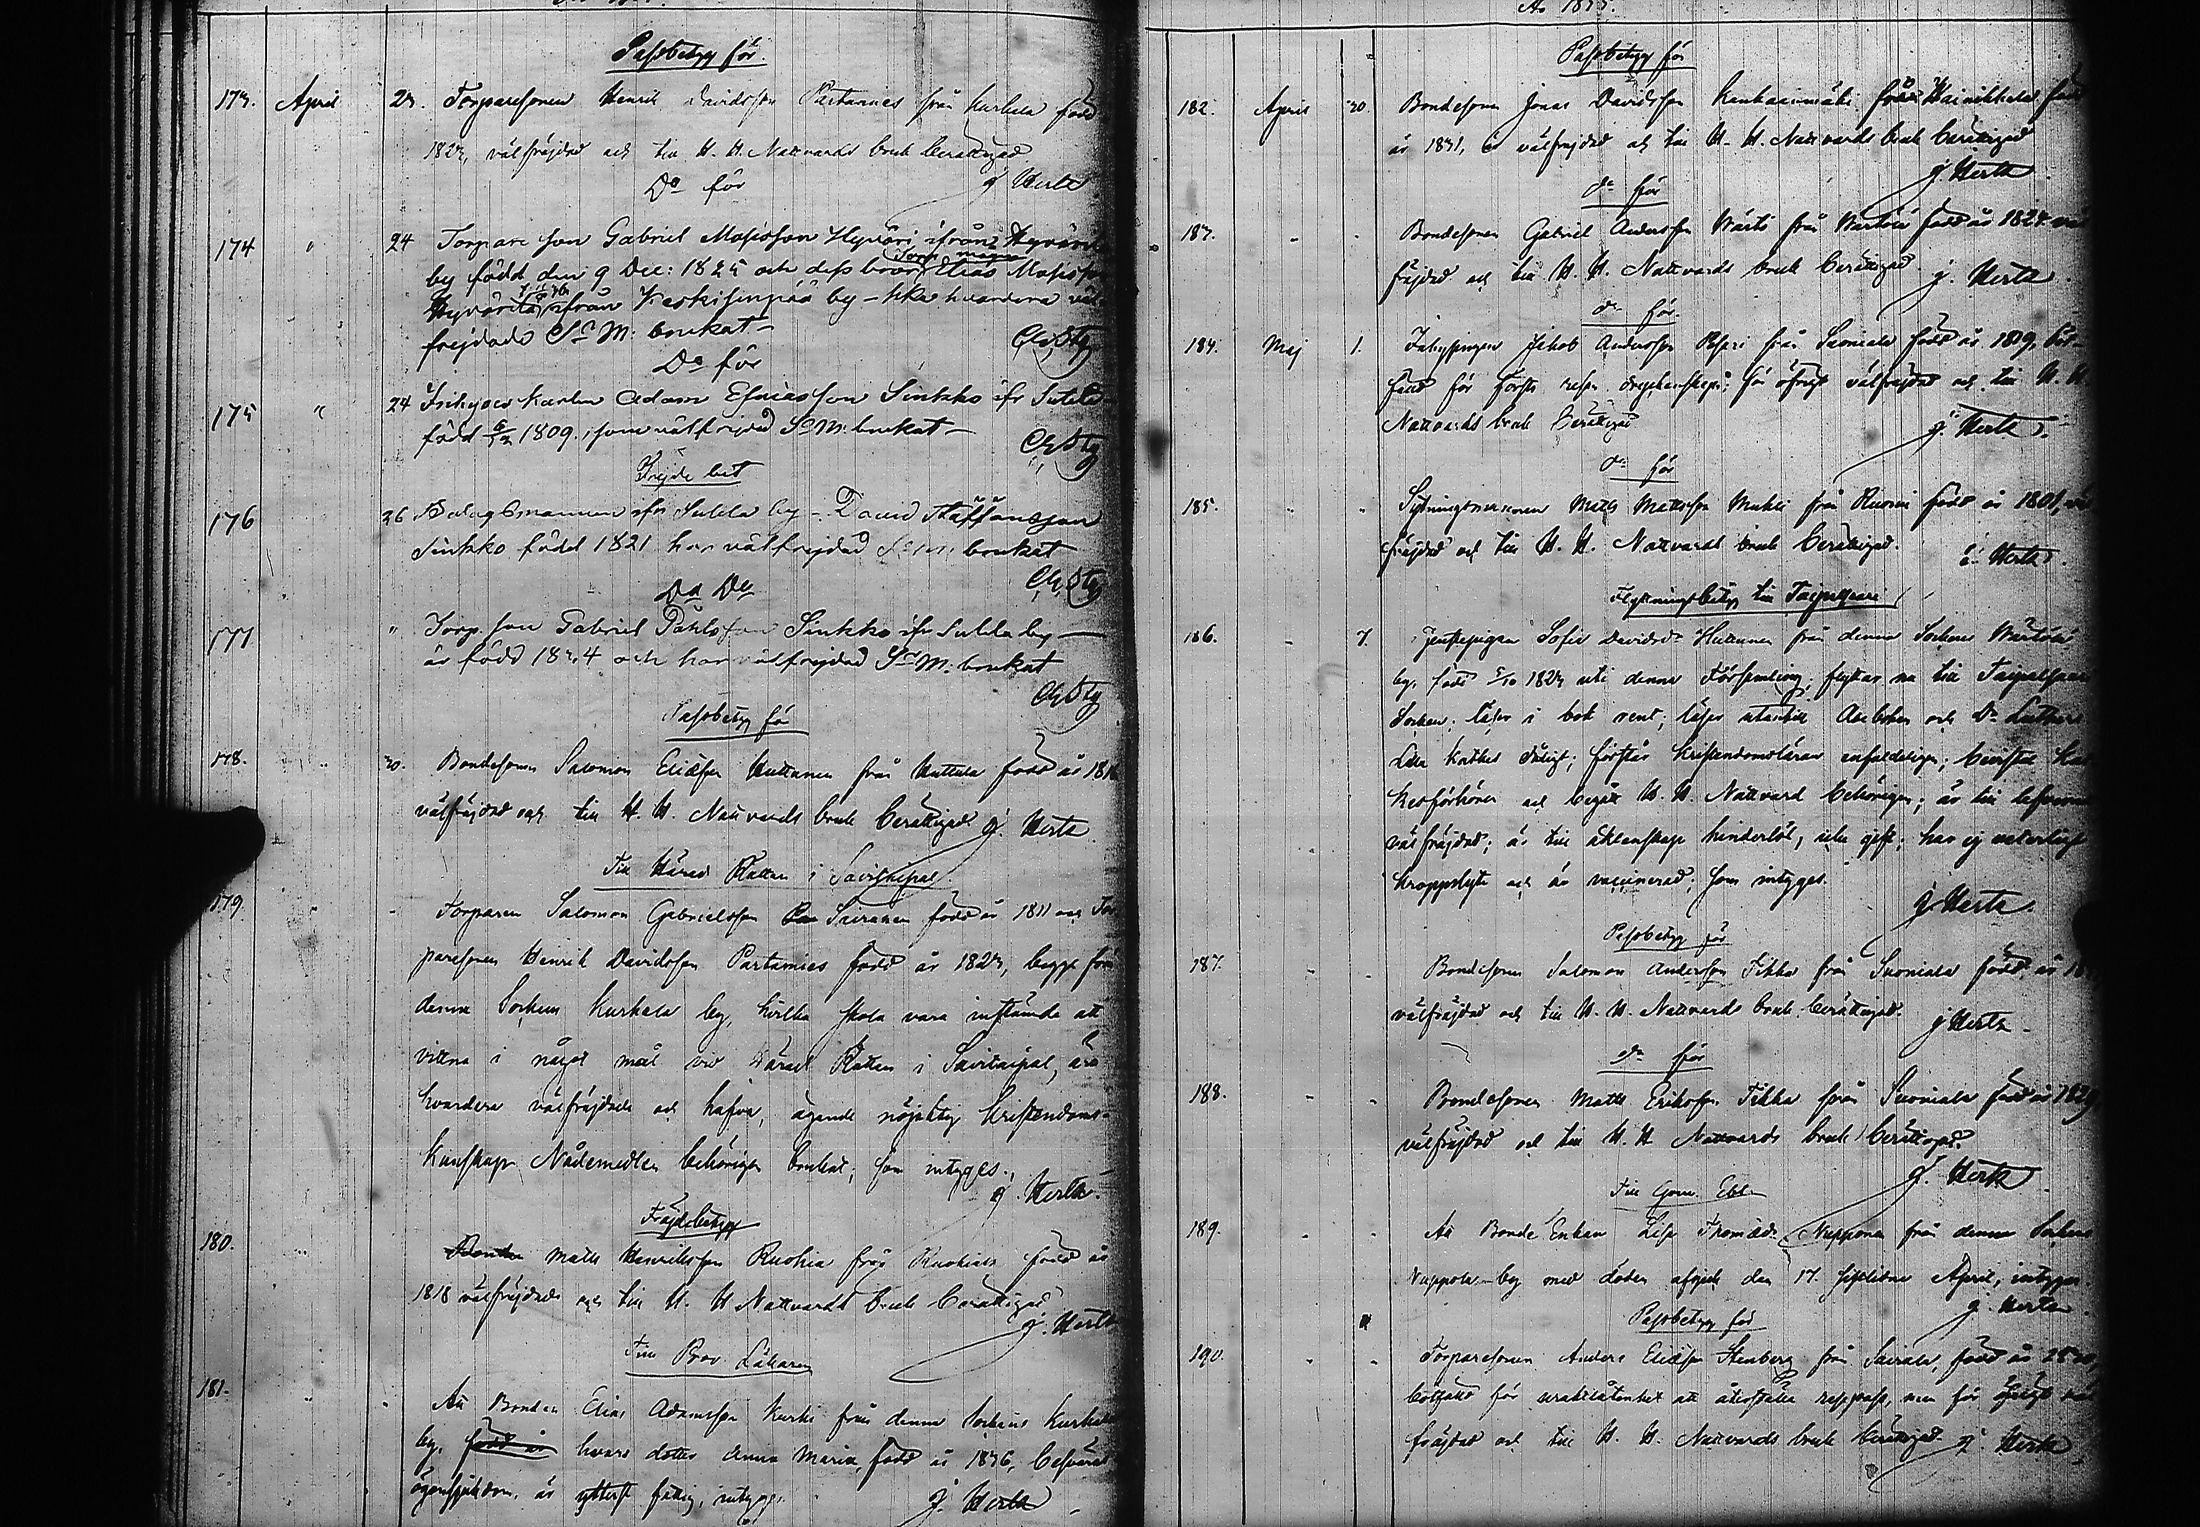 Passbetyg för
173. April 23. Torparesonen Henrik Davidsson Partanies från Kurhela född
1823, välfräjdad och till H. H. Nattvards bruk berättigad
Do för G. Herta
174 " 24 Torpare son Gabriel Masisson Hyväri, ifrån Hyvärilä
by född den 9 Dec: 1825 och dess broder Elias
Hyväri från Keskisenpää by — hvardera väl
frejdade Sr M: brukat —
Do för
175 " 24 Inhyses karlen Adam Esaiasson Sinkko ifr Sutela
född 1809, som välfrejdad Sr M. brukat —
Frejde bet
176 26 Bolagsmannen ifr Sulela by — David Staffansson
Sinkko född 1821 har välfrejdad brukat
Do Do
177 " Torp son Gabriel Påhlsson Sinkko ifr Sulela by —
är född 1834 och har välfrejdad Sr M: brukat
Passbetyg för
178. 30. Bondesonen Salomon Ericsson Huttunen från Huttula född år
välfräjdad och till H. H. Nattvards bruk berättigad. G. Herta
Till Härads Rätten i Savitaipal.
179. Torparen Salomon Gabrielsson Suiranen född år 1811 och Tor
paresonen Henrik Davidsson Partanies född år 1823, begge från
denna Sockens Kurhela by, hvilka skola vara instämde att
vittna i något mål vid Härads Rätten i Savitaipal, äro
hvardera välfräjdade och hafva, ägande nöjaktig kristendoms-
kunskap Nådemedlen behörigen brukat; som intyges.
G. Herta.
Fräjdebetyg
180. Bonden Matts Henriksson Ruohia från Ruohiala född år
1818 välfräjdad och till H. H Nattvards bruk berättigad
G. Herta
Till Prov. Läkaren
181. Att Bonden Elias Adamsson Kurki från denna Sockens Kurhela
by, född år hvars dotter Anna Maria, född år 1836, besväras
ögonsjukdom, är ytterst fattig, intyges.
G. Herta
År 1855.
Passbetyg för
182. April 30. Bondesonen Jonas Davidsson från Hainikkala född
år 1831, är välfrejdad och till H. H. Nattvards bruk berättigad
G. Herta.
do för
183. - - Bondesonen Gabriel Andersson Wärtö från född år 1824 väl
fräjdad och till H. H. Nattvards bruk berättigad.
G. Herta
do för.
184. Maj 1. Inhysingen Jakob Andersson från Suoniala född år 1819, böt-
fäld för första resan dryckenskap; för öfrigt välfräjdad och till H. H.
Nattvards bruk berättigad
G. Herta.
do för
185. " " Sytningsmannen Matts Mattsson från född år 1801, väl
fräjdad och till H. H. Nattvards bruk berättigad.
G. Herta.
Flyttningsbetyg till Taipalsaari
186. - 7. Tjenstepigan Sofia Davidsdr Huttunen från denna Sockens
by, född 5/10 1823 uti denna Församling; flyttar nu till Taipalsaari
Socken; läser i bok rent; läser utantill Abcboken och Dr Luthers
Lilla Kathes dåligt; förstår kristendomsläran enfaldeligen; bevistat Kate
kesförhören och begått H. H. Nattvard behörigen; är till lefvernet
välfräjdad; är till äktenskap hinderlös, icke gift; har ej veterligt
kroppslyte och är vaccinerad; som intyges.
G. Herta.
Passbetyg för
187. - - Bondesonen Salomon Andersson Tikka från Suoniala född år
välfräjdad och till H. H. Nattvards bruk berättigad.
G Herta.
do för
188. - - Bondesonen Matts Eriksson Tikka från Suoniala född år 1829
välfräjdad och till H. H Nattvards bruk berättigad.
G. Herta
Till Guv.
189. - - Att Bonde Enkan Lisa Thomasdr Nupponen från denna Sockens
Nuppola by med döden afgick den 17. sistlidne April, intyges.
G. Herta
Passbetyg för
190. - - Torparesonen Anders Ericsson Stenberg från Suirala, född år
bötfäld för uraktlåtenhet att återställa respass, men för öfrigt väl
fräjdad och till H. H. Nattvards bruk berättigad. G. Herta